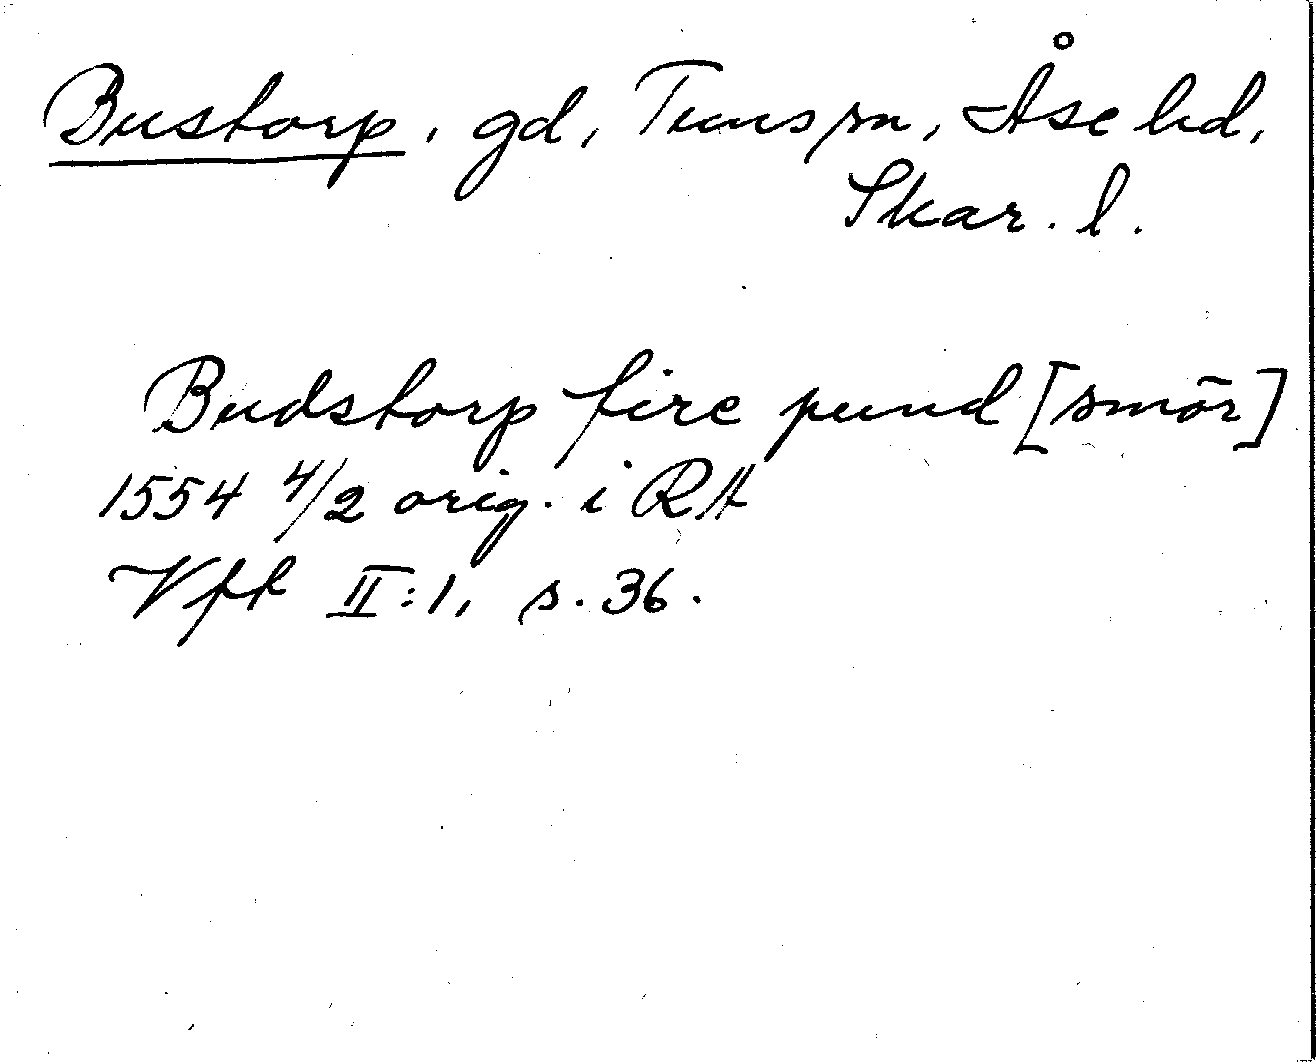 Bustorp, gd, Tuns sn, Åse hd,
Skar. l.
Budstorp fire pund [smör]
1554 4/2 orig. i RA
Vft II:1, s. 36.